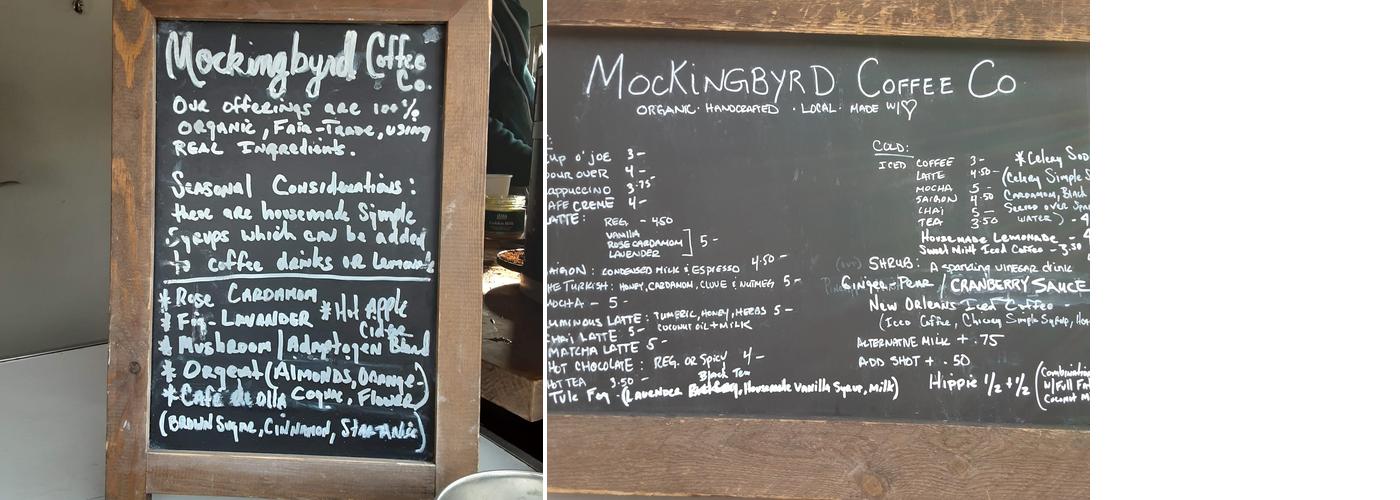 Mockingbyrd Coffee
Co.
Our offerings are 100%
ORGANIC, FAIR-TRADE, using
REAL Ingredients.
Seasonal Considerations:
there are housemade Simple
Syrups which can be added
to coffee drinks OR Lemonade
* Rose CARDAMOM
* Hot Apple
Cider
* Fig-LAVANDER
* Mushroom / Adaptogen Blend
* Orgeat (Almonds, Orange-
Cognac, Flower)
* Café de olla
(BROWN Sugar, Cinnamon, Star Anise)
MOCKINGBYRD COFFEE CO
ORGANIC · HANDCRAFTED · LOCAL · MADE W/♡
up o' joe 3-
our over 4-
appuccino 3.75-
AFE CREME 4-
ATTE: REG. - 4.50
VANILLA
ROSE CARDAMOM ] 5-
LAVENDER
AIGON: CONDENSED MILK & ESPRESSO 4.50-
HE TURKISH: HONEY, CARDAMOM, CLOVE & NUTMEG 5-
OCHA - 5-
UMINOUS LATTE: TUMERIC, HONEY, HERBS 5-
COCONUT OIL + MILK
CHAI LATTE 5-
MATCHA LATTE 5-
HOT CHOCOLATE: REG. OR Spicy 4-
HOT TEA 3.50-
Black Tea
Tule Fog - (LAVENDER, Housemade Vanilla Syrup, Milk)
COLD:
ICED COFFEE 3-
LATTE 4.50-
MOCHA 5-
SAIGON 4.50
CHAI 5-
TEA 3.50
* Celery Sod
(Celery Simple S
CARDAMOM, Black
Served over Spar
WATER) - 4
Housemade Lemonade - 4
Sweet Mint Iced Coffee - 3.50
SHRUB: A sparkling VINEGAR drink
GINGER PEAR / CRANBERRY SAUCE
New Orleans Iced Coffee
(Iced Coffee, Chicory Simple Syrup, Ho
ALTERNATIVE MILK + .75
ADD SHOT + .50
Hippie 1/2 + 1/2 (Combination
w/Full Fat
Coconut M